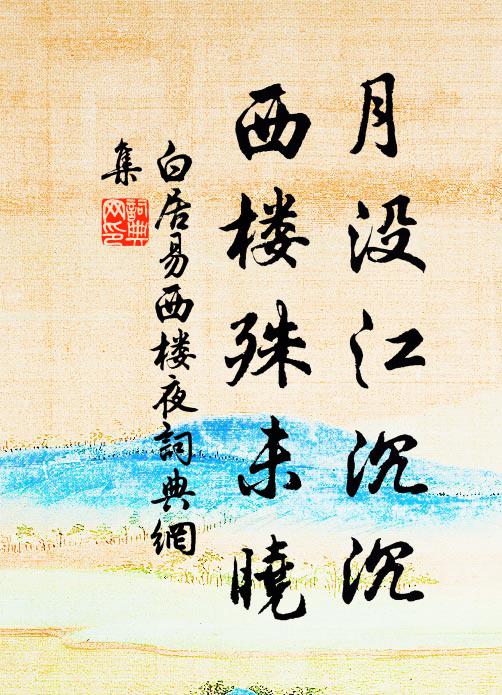 月没江沉沉
西楼殊未曉
白居易西楼夜詞典網
集
詞典
网印